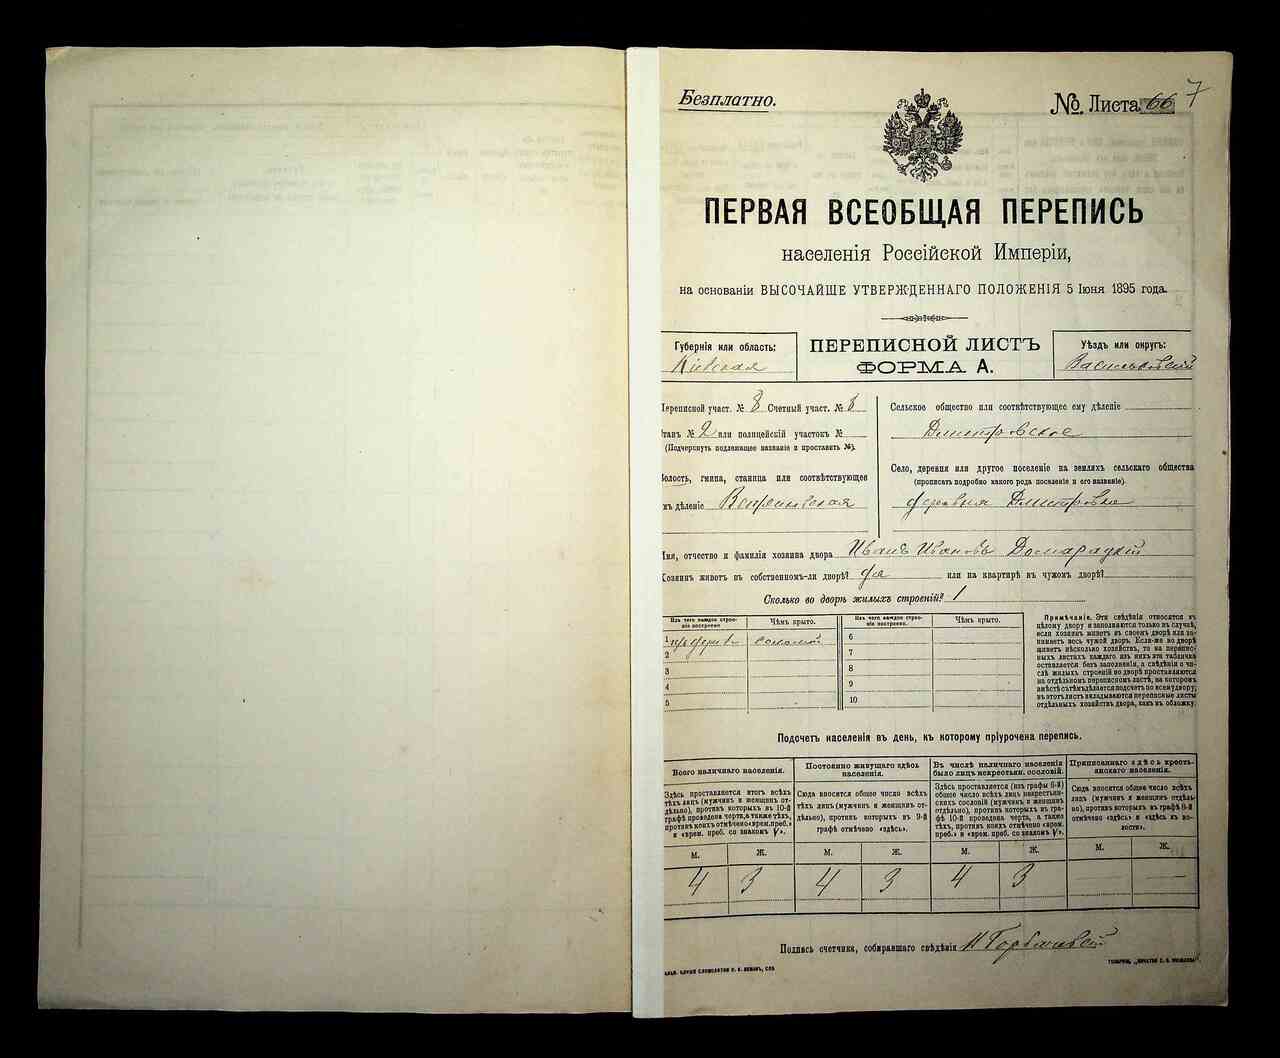 Безплатно.
№ Листа 66 7
ПЕРВАЯ ВСЕОБЩАЯ ПЕРЕПИСЬ
населенія Россійской Имперіи,
на основаніи ВЫСОЧАЙШЕ УТВЕРЖДЕННАГО ПОЛОЖЕНІЯ 5 Іюня 1895 года.
Губернія или область:
Кіевская
ПЕРЕПИСНОЙ ЛИСТЪ
ФОРМА А.
Уѣздъ или округъ:
Васильковскій
Переписной участ. № 8 Счетный участ. № 8
Станъ № 2 или полицейскій участокъ №
(Подчеркнуть подлежащее названіе и проставить №).
Волость, гмина, станица или соотвѣтствующее
имъ дѣленіе
Сельское общество или соотвѣтствующее ему дѣленіе
Дмитровское
Село, деревня или другое поселеніе на земляхъ сельскаго общества
(прописать подробно какого рода поселеніе и его названіе).
деревня Дмитровка
Имя, отчество и фамилія хозяина двора Иванъ Ивановъ Домарацкій
Хозяинъ животъ въ собственномъ-ли дворѣ? Да или на квартирѣ въ чужомъ дворѣ?
Сколько во дворѣ жилыхъ строеній? 1
Изъ чего каждое строе-
ніе построено.
Чѣмъ крыто.
Изъ чего каждое строе-
ніе построено.
Чѣмъ крыто.
1 соломой
2
3
4
5
6
7
8
9
10
Примѣчаніе. Эти свѣдѣнія относятся къ
цѣлому двору и заполняются только въ случаѣ,
если хозяинъ живетъ въ своемъ дворѣ или за-
нимаетъ весь чужой дворъ. Если-же во дворѣ
живетъ нѣсколько хозяйствъ, то на перепис-
ныхъ листахъ каждаго изъ нихъ эта табличка
оставляется безъ заполненія, а свѣдѣнія о чи-
слѣ жилыхъ строеній во дворѣ проставляются
на отдѣльномъ переписномъ листѣ, на которомъ
вмѣстѣ съ тѣмъ дѣлается подсчетъ по всему двору;
въ этотъ листъ вкладываются переписные листы
отдѣльныхъ хозяйствъ двора, какъ въ обложку.
Подсчетъ населенія въ день, къ которому пріурочена перепись.
Всего наличнаго населенія.
Здѣсь проставляется итогъ всѣхъ
тѣхъ лицъ (мужчинъ и женщинъ от-
дѣльно), противъ которыхъ въ 10-й
графѣ проведена черта, а также тѣхъ,
противъ коихъ отмѣчено «врем. преб.»
и «врем. преб. со знакомъ V».
М. Ж.
4 3
Постоянно живущаго здѣсь
населенія.
Сюда вносится общее число всѣхъ
тѣхъ лицъ (мужчинъ и женщинъ от-
дѣльно), противъ которыхъ въ 9-й
графѣ отмѣчено «здѣсь».
М. Ж.
4 3
Въ числѣ наличнаго населенія
было лицъ некрестьянск. сословій.
Здѣсь проставляется (изъ графы 6-й)
общее число всѣхъ лицъ некрестьян-
скихъ сословій (мужчинъ и женщинъ
отдѣльно), противъ которыхъ въ гра-
фѣ 10-й проведена черта, а также
тѣхъ, противъ коихъ отмѣчено «врем.
преб.» и «врем. преб. со знакомъ V».
М. Ж.
4 3
Приписаннаго здѣсь кресть-
янскаго населенія.
Сюда вносится общее число всѣхъ
лицъ (мужчинъ и женщинъ отдѣль-
но), противъ которыхъ въ графѣ 8-й
отмѣчено «здѣсь» и «здѣсь въ во-
лости».
М. Ж.
— —
Подпись счетчика, собиравшаго свѣдѣнія